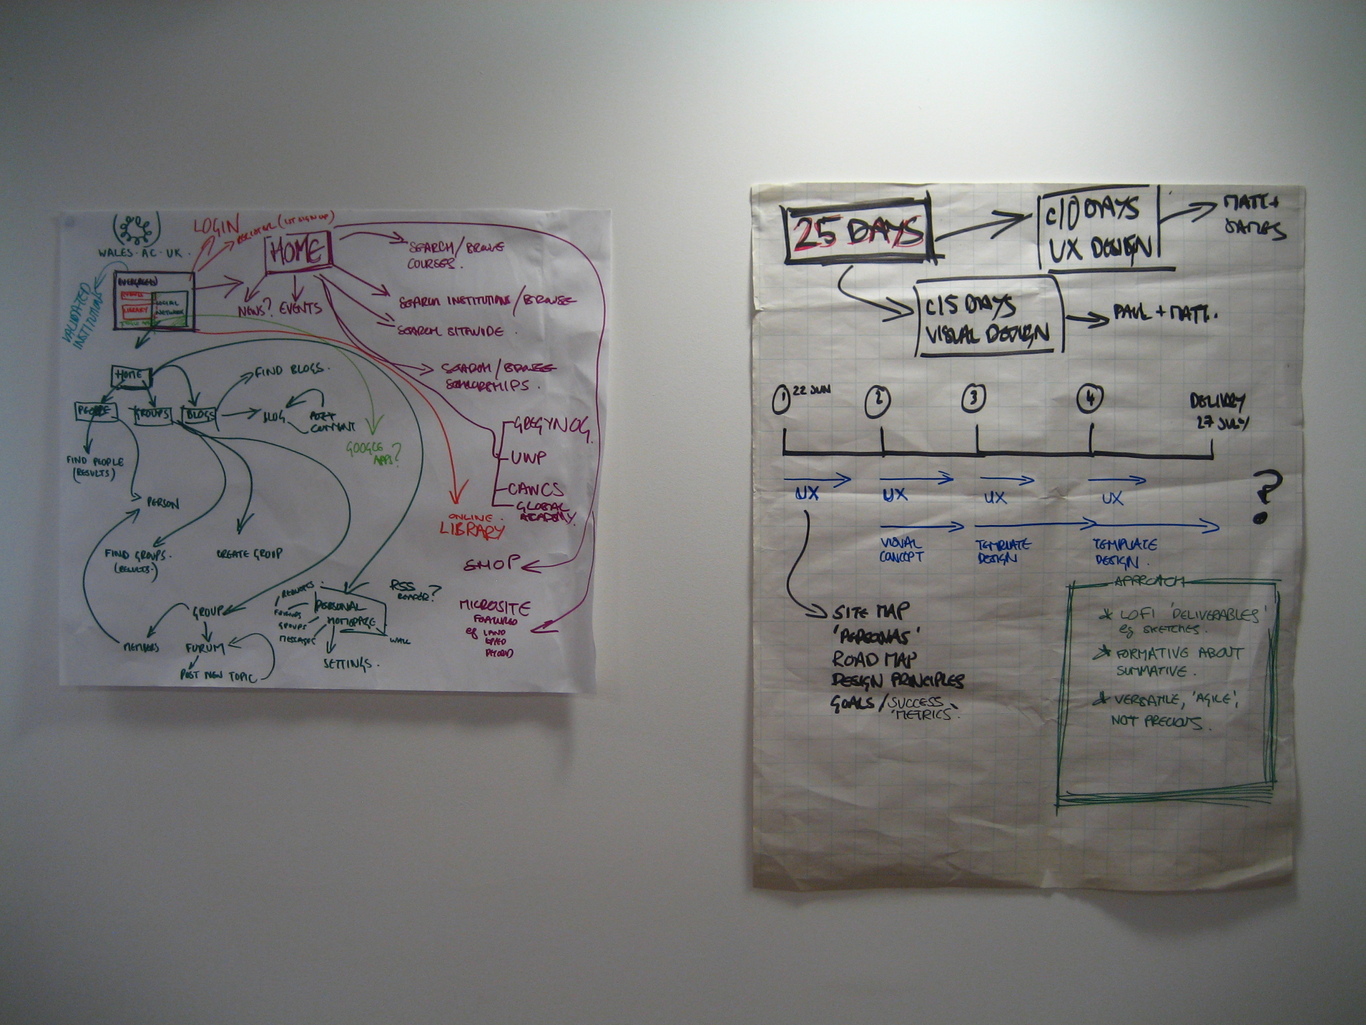 WALES.AC.UK.
LOGIN
HOME
VALIDATED
INSTITUTIONS
LIBRARY
SOCIAL
NETWORK
NEWS? EVENTS
SEARCH/BROWSE
COURSES.
SEARCH INSTITUTIONS/BROWSE
SEARCH SITEWIDE
SEARCH/BROWSE
SCHOLARSHIPS.
GREGYNOG.
UWP
CAWCS
GLOBAL
ACADEMY.
ONLINE
LIBRARY
SHOP
MICROSITE
FEATURED
eg
GOOGLE
API?
HOME
PEOPLE
GROUPS
BLOGS
FIND BLOGS.
BLOG
POST
COMMENT
FIND PEOPLE
(RESULTS)
PERSON
FIND GROUPS.
(RESULTS.)
CREATE GROUP
GROUP
MEMBERS
FORUM
POST NEW TOPIC
PERSONAL
HOMEPAGE
FRIENDS
GROUPS
MESSAGES
WALL
SETTINGS.
RSS
READER?
25 DAYS
c10 DAYS
UX DESIGN
MATT +
JAMES
c15 DAYS
VISUAL DESIGN
PAUL + MATT.
1 22 JUN
2
3
4
DELIVERY
27 JULY
UX
UX
UX
UX
?
VISUAL
CONCEPT
TEMPLATE
DESIGN
TEMPLATE
DESIGN.
SITE MAP
'PERSONAS'
ROAD MAP
DESIGN PRINCIPLES
GOALS/SUCCESS
METRICS.
APPROACH
* LOFI 'DELIVERABLES'
eg SKETCHES.
* FORMATIVE ABOUT
SUMMATIVE.
* VERSATILE, 'AGILE',
NOT PRECIOUS.